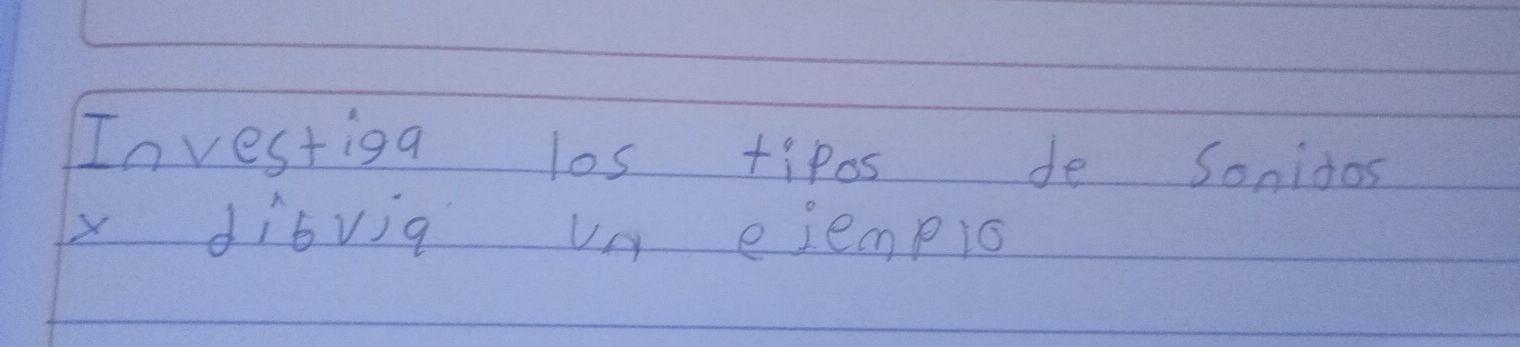 Investiga los tipos de Sonidos
y dibuja un ejemplo